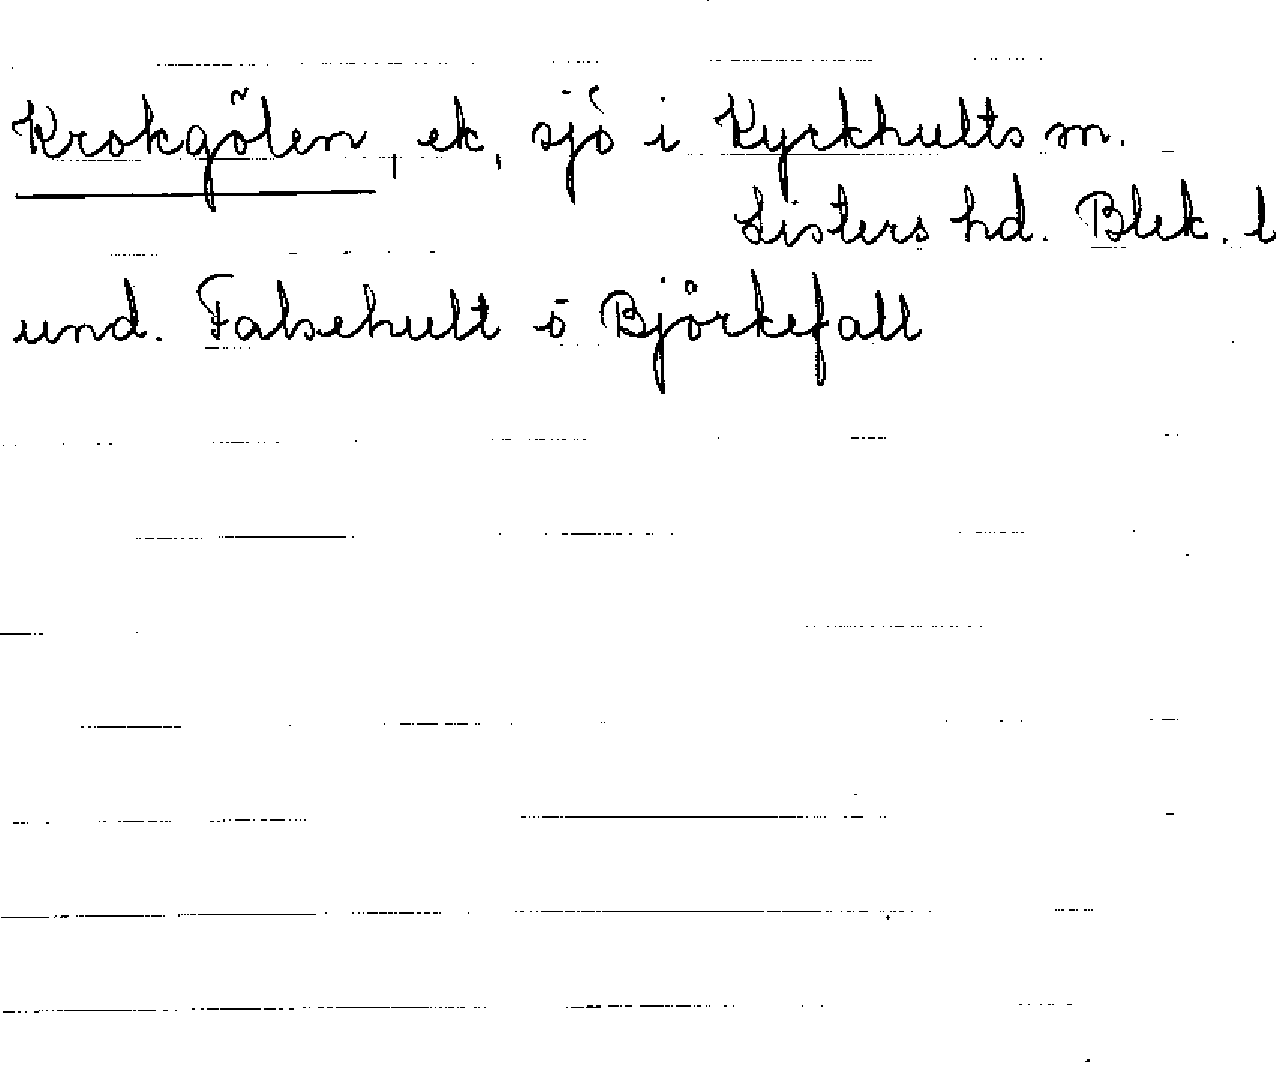 Krokgölen, ek, sjö i Kyrkhults sn.
Listers hd. Blek. l
und. Falsehult o Björkefall